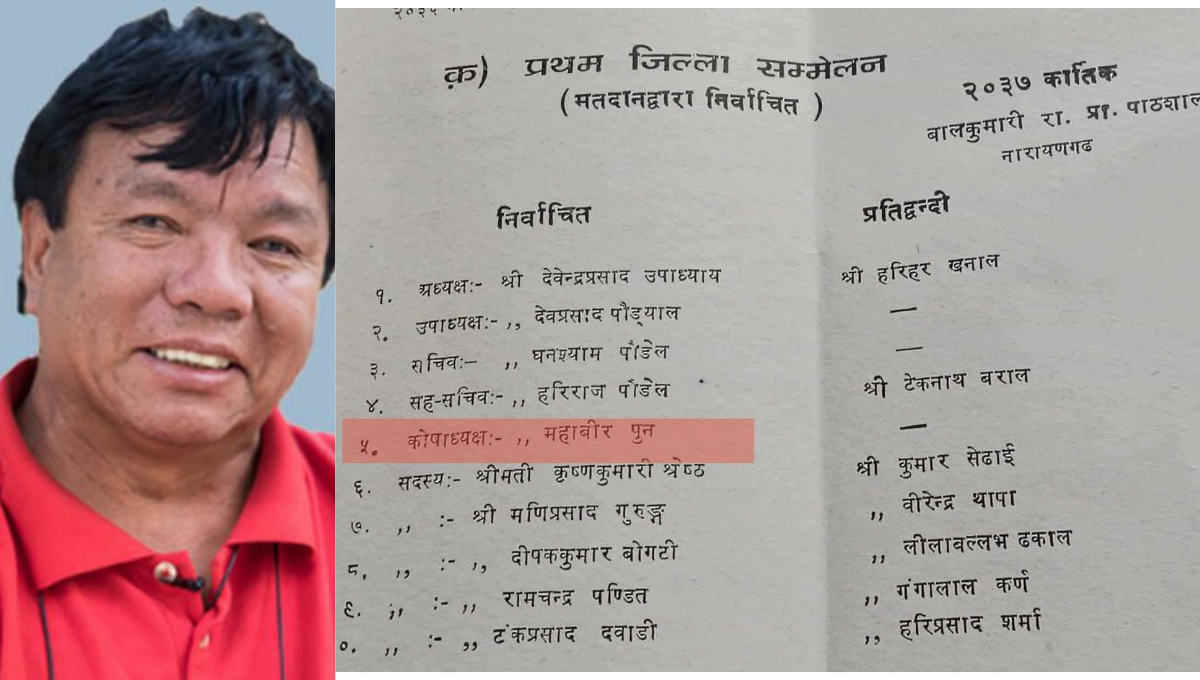 क) प्रथम जिल्ला सम्मेलन
(मतदानद्वारा निर्वाचित )
२०३७ कार्तिक
बालकुमारी रा. प्रा. पाठशाल
नारायणगढ
निर्वाचित प्रतिद्वन्दी
१. अध्यक्षः- श्री देवेन्द्रप्रसाद उपाध्याय श्री हरिहर खनाल
२. उपाध्यक्षः- ,, देवप्रसाद पौड्याल —
३. सचिवः— ,, घनश्याम पौडेल —
४. सह-सचिवः- ,, हरिराज पौडेल श्री टेकनाथ बराल
५. कोषाध्यक्षः- ,, महाबीर पुन —
६. सदस्यः- श्रीमती कृष्णकुमारी श्रेष्ठ श्री कुमार सेढाई
७. ,, :- श्री मणिप्रसाद गुरुङ्ग ,, वीरेन्द्र थापा
८. ,, :- ,, दीपककुमार बोगटी ,, लीलावल्लभ ढकाल
९. ,, :- ,, रामचन्द्र पण्डित ,, गंगालाल कर्ण
०. ,, :- ,, टंकप्रसाद दवाडी ,, हरिप्रसाद शर्मा